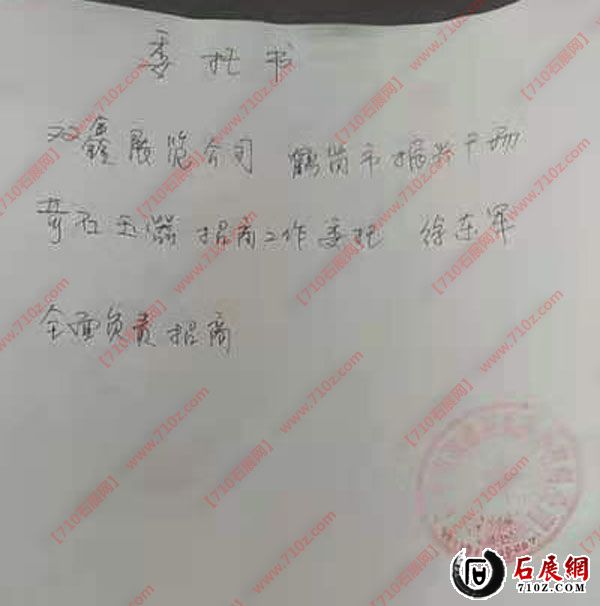 委托书
双鑫展览公司 鹤岗市振兴广场
奇石玉器招商工作委托 徐东军
全面负责招商
【710石展网】www.710z.com
石展網
710Z.COM